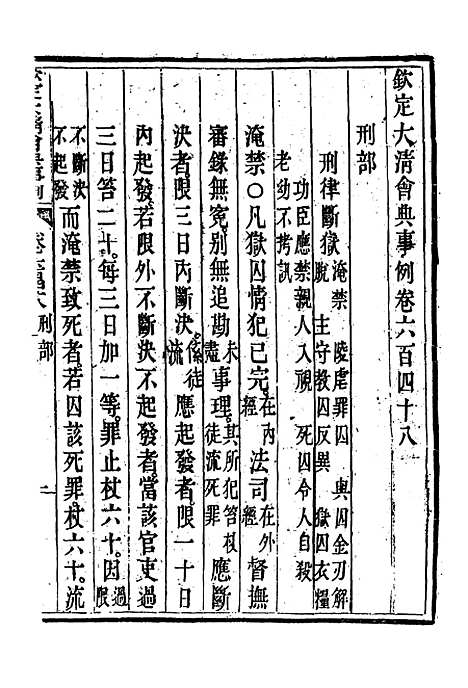 欽定大清會典事例卷六百四十八
刑部
刑律斷獄 淹禁 陵虐罪囚 與囚金刃解
脫 主守教囚反異 獄囚衣糧
功臣應禁親人入視 死囚令人自殺
老幼不拷訊
淹禁○凡獄囚情犯已完在內經法司在外經督撫
審錄無冤別無追勘未盡事理其所犯笞杖徒流死罪應斷
決者限三日內斷決係徒流應起發者限一十日
內起發若限外不斷決不起發者當該官吏過
三日笞二十每三日加一等罪止杖六十因過限
不斷決不起發而淹禁致死者若囚該死罪杖六十流
刑部